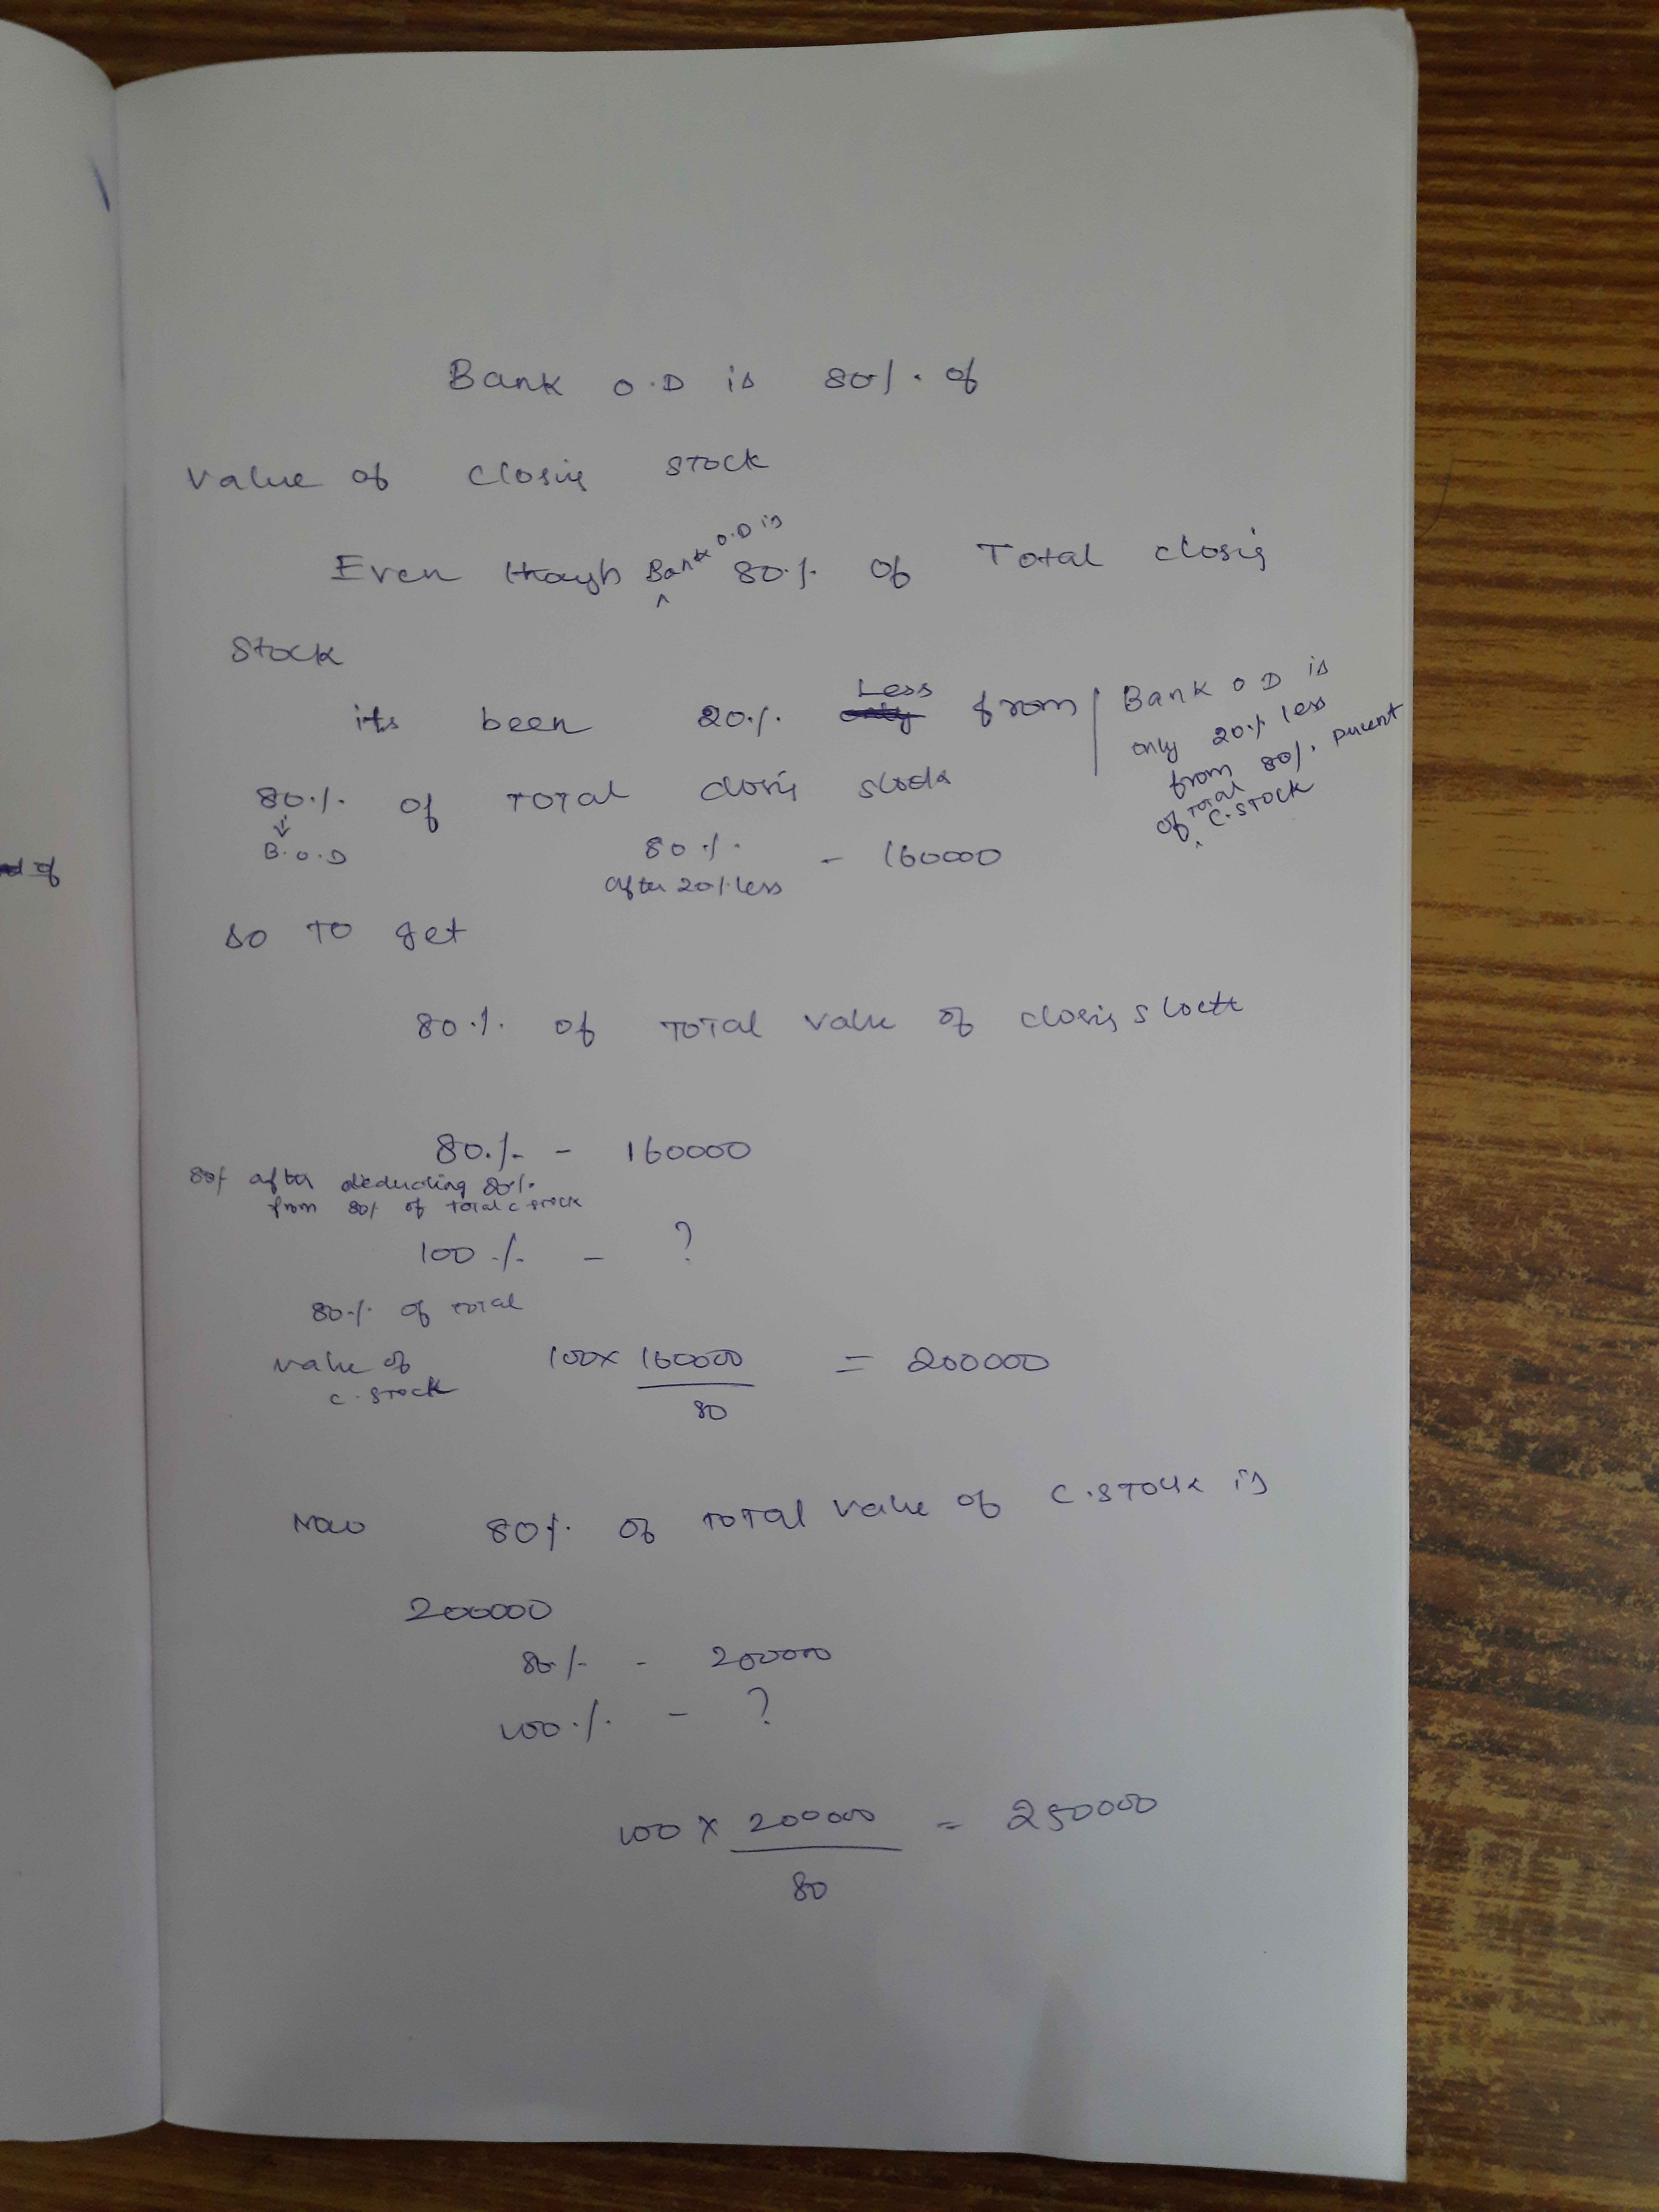 Bank O.D is 80% of
Value of Closig STOCK
Even though Bank O.D is 80% of Total closig
Stock
its been 20% Less from
80% of TOTAL closig stock
B.O.D
Bank O D is
only 20% less
from 80% pucent
of TOTAL C.STOCK
80% - 160000
after 20% less
so TO get
80% of TOTAL Value of closig stock
80% - 160000
80% after deducting 80%
from 80% of total c stock
100% - ?
80% of total
value of
c.stock
100x 160000 = 200000
80
Now 80% of TOTAL Value of C.STOCK is
200000
80% - 200000
100% - ?
100 x 200000 = 250000
80
of